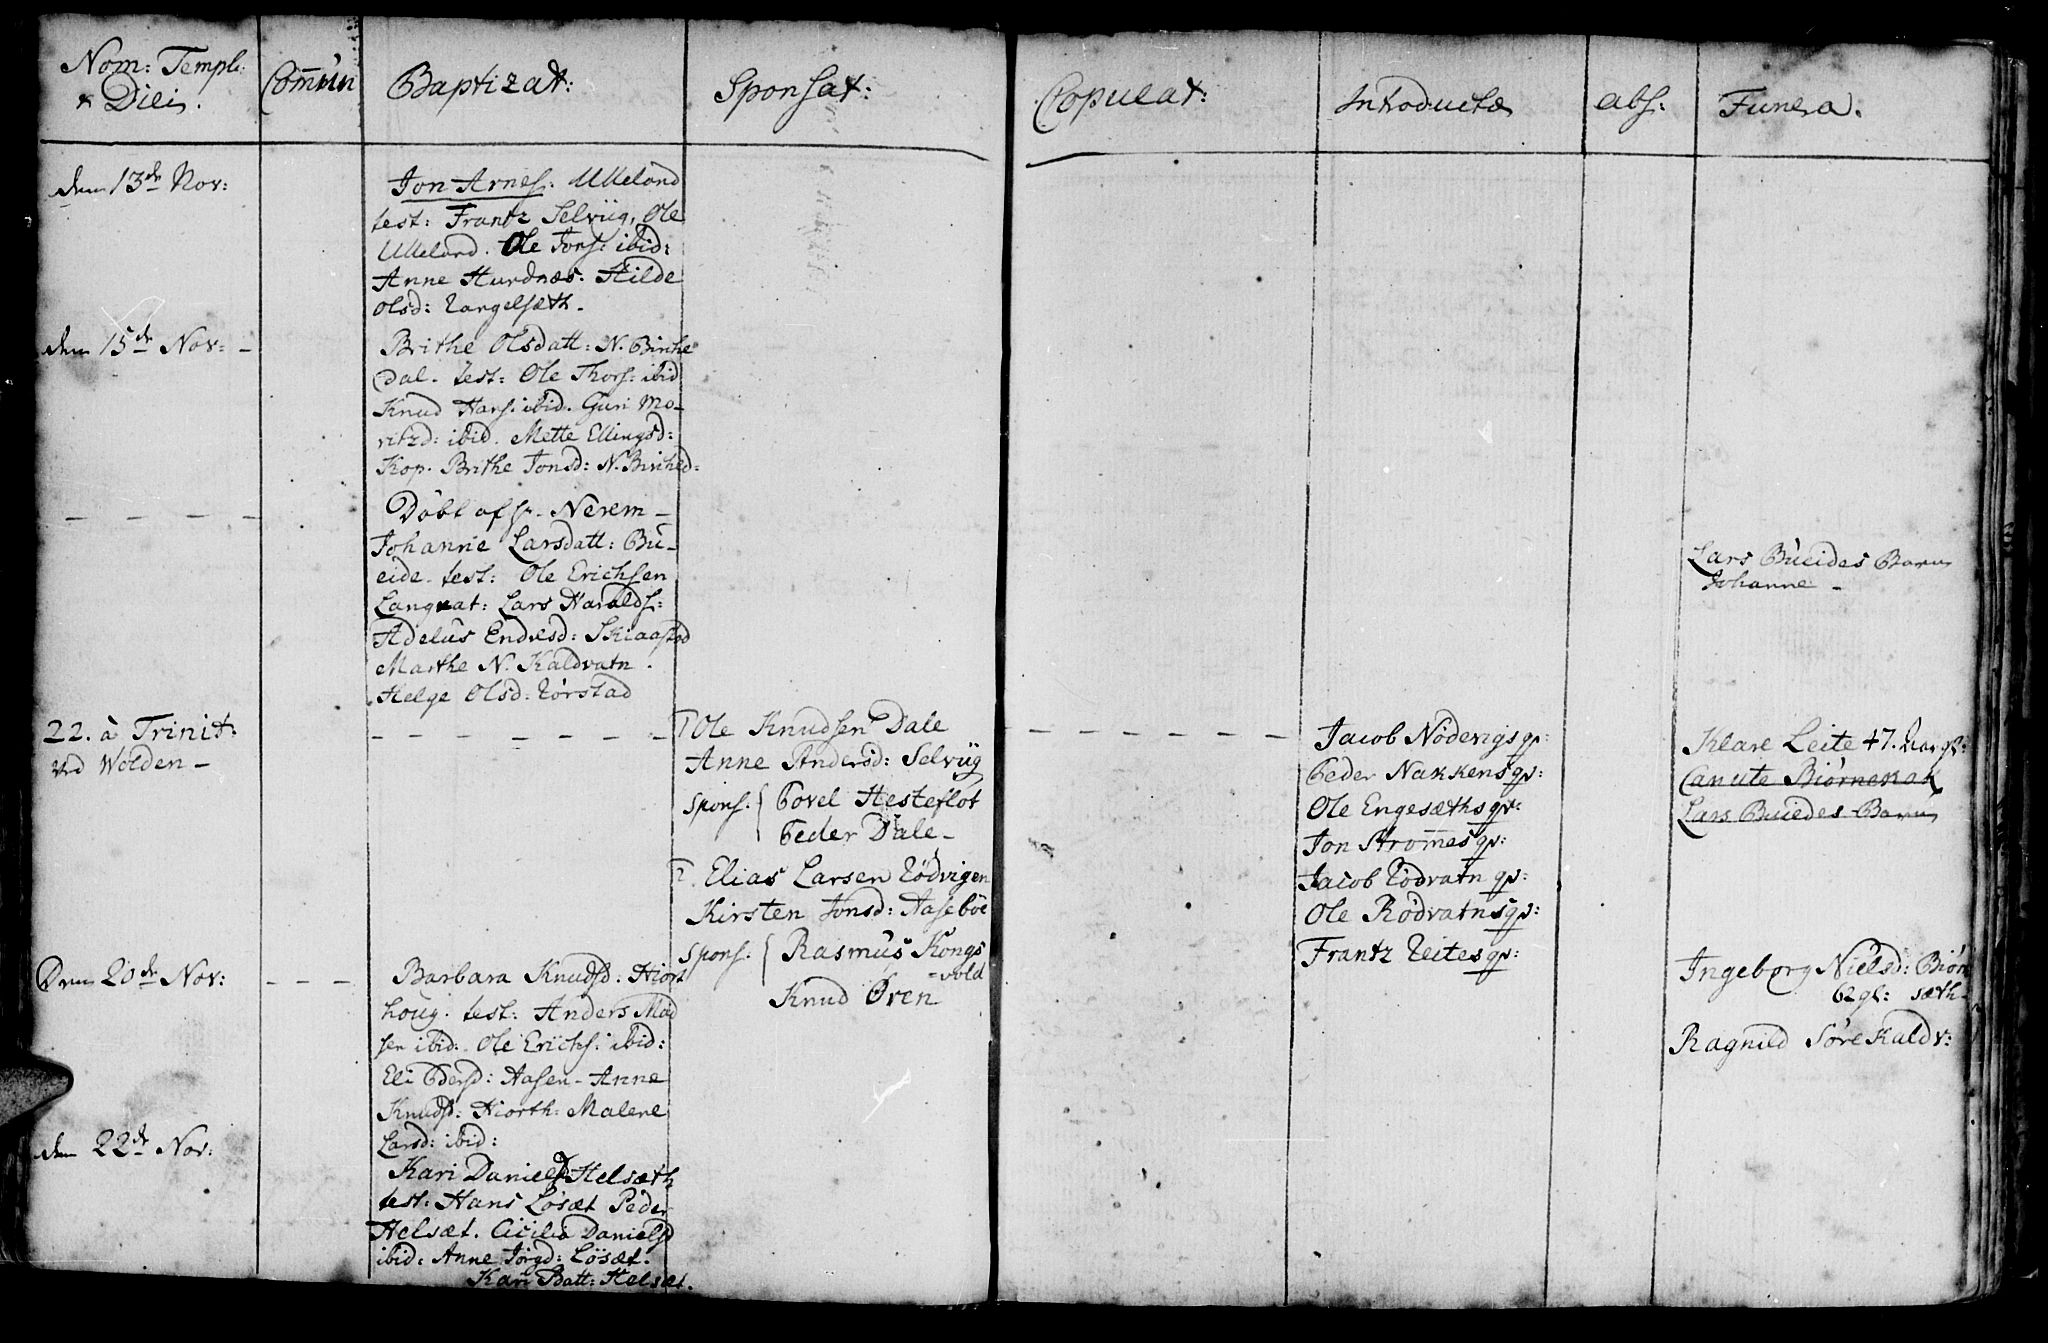 Nom: Templ:
& Diei.
Com̄un
Baptizat:
Sponsat:
Copulat:
Introductæ
abs:
Funera.
den 13de Nov:
Jon Arnes: Ulleland
test: Frantz Selviig, Ole
Ulleland. Ole Jons: ibid:
Anne Hurdnæs: Hilde
Olsd: Targelsæth.
den 15de Nov: -
Brithe Olsdatt: N. Birke
dal. test: Ole Thors: ibid
Knud Hans: ibid. Guri Mo-
ritzd: ibid. Mette Ellingsd:
Kop. Brithe Jonsd: N. Birked:
Døbt af Hr. Nerem -
Johanne Larsdatt: Bu-
eide. test: Ole Erichsen
Langvat: Lars Haralds:
Adelus Endresd: Skiaastad
Marthe N. Kaldvatn.
Helge Olsd: Tørstad
Lars Bueides Barn
Johanne -
22. à Trinit:
ved Wolden -
1 Ole Knudsen Dale
Anne Andersd: Selviig
spons: { Povel Hesteflot
Peder Dale -
2. Elias Larsen Rødvigen
Kirsten Jonsd: Aasebøe
spons: { Rasmus Kongs
-vold
Knud Øren
Jacob Nødevigs qv:
Peder Nakkens qv:
Ole Engesæths qv:
Jon Strom̄es qv:
Jacob Rødvatn qv:
Ole Rødvatns qv:
Frantz Leites qv:
Klare Leite 47. Aar gl:
Canute Biørnenak
Lars Bueides Barn
Den 20de Nov:
Barbara Knudsd: Hiort
houg. test: Anders Mad
sen ibid: Ole Erichs: ibid:
Eli Pedersd: Aasen - Anne
Knudsd: Hiorth: Malene
Larsd: ibid:
Ingeborg Nielsd: Biør
62 gl: sæth-
Ragnild Søre Kaldv:
den 22de Nov:
Kari Danielsd: Helsæth
test: Hans Løsæt Peder
Helsæt. Cicilia Danielsd
ibid: Anne Jørgd: Løsæt.
Kari Batt: Helsæt.